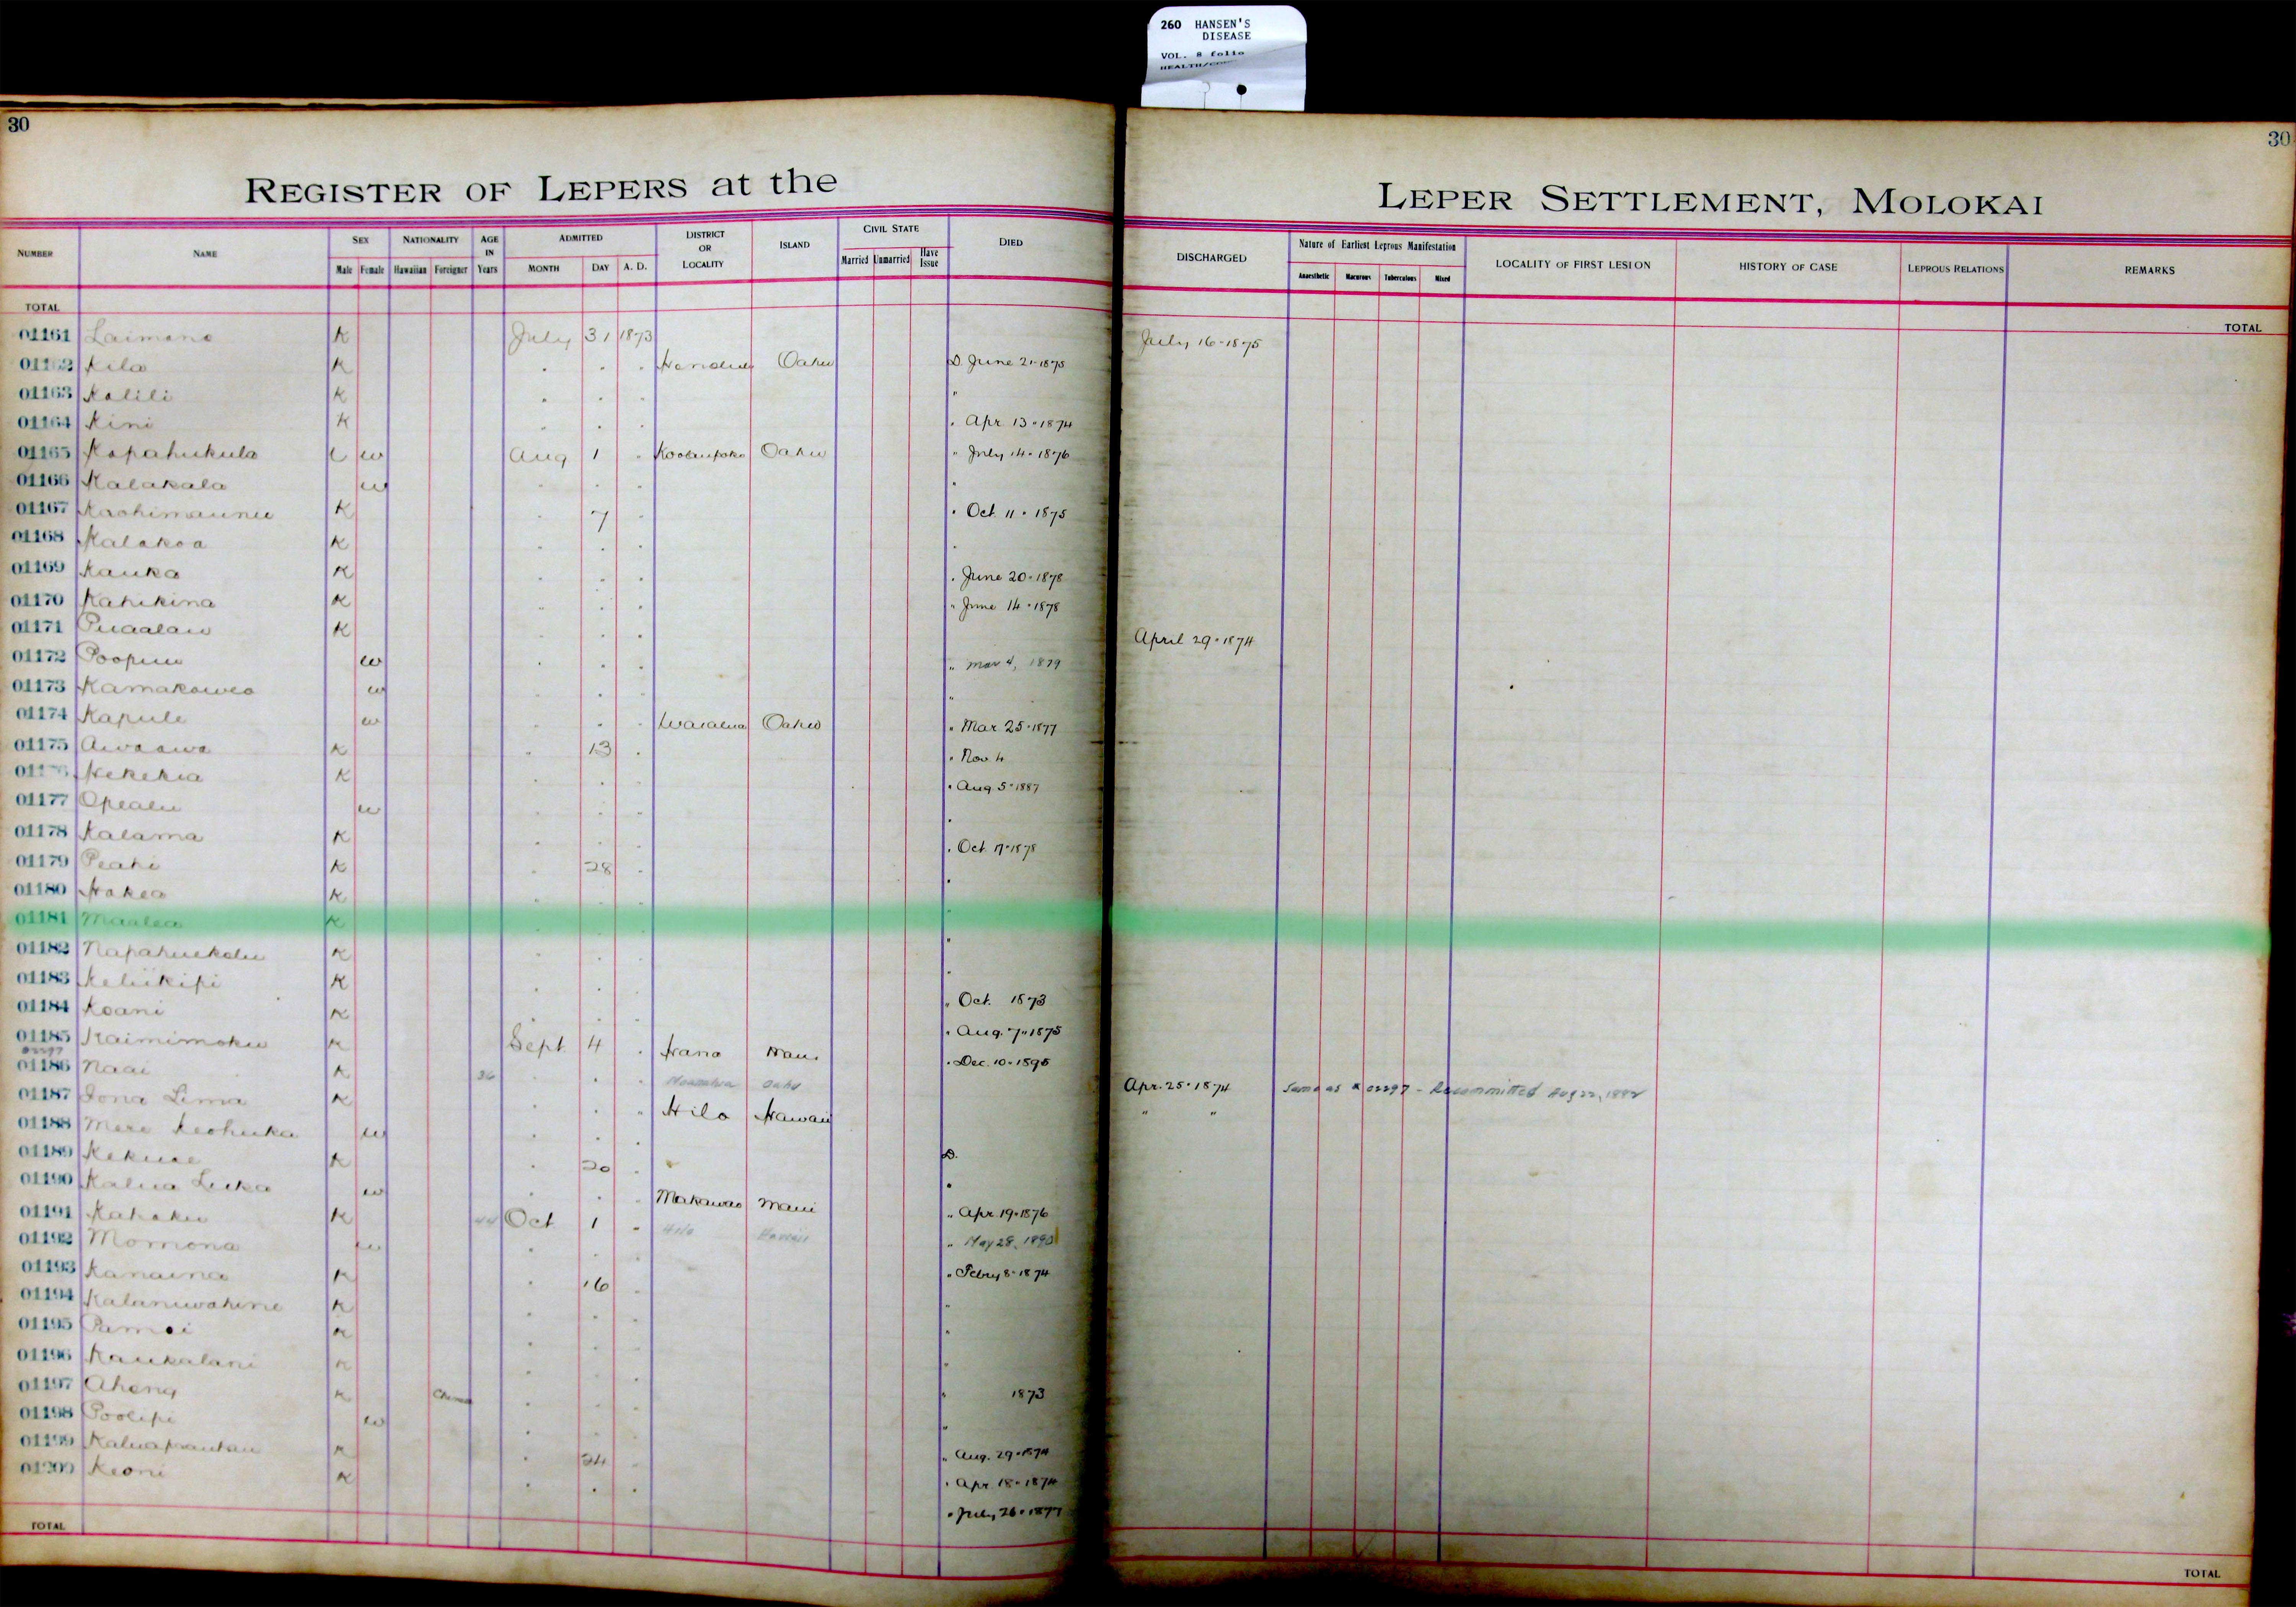 260 HANSEN'S
DISEASE
VOL. 8 folio
30
30
REGISTER OF LEPERS at the
LEPER SETTLEMENT, MOLOKAI
NUMBER NAME SEX Male Female NATIONALITY Hawaiian Foreigner AGE IN Years ADMITTED MONTH DAY A. D. DISTRICT OR LOCALITY ISLAND CIVIL STATE Married Unmarried Have Issue DIED DISCHARGED Nature of Earliest Leprous Manifestation Anaesthetic Macurous Tuberculous Mixed LOCALITY OF FIRST LESION HISTORY OF CASE LEPROUS RELATIONS REMARKS
TOTAL TOTAL
01161 Laimana K July 31 1873 July 16-1875
Kila K " " " Honolulu Oahu D. June 21-1875
01163 Kalili K " " " "
01164 Kini K " " " " Apr. 13-1874
01165 Kapahukula w Aug 1 " Koolaupoko Oahu " July 14-1876
01166 Kalakala w " " " "
01167 K " 7 " " Oct. 11-1875
01168 Kalakoa K " " " "
01169 Kauka K " " " " June 20-1878
01170 Kahikina K " " " " June 14-1878
01171 Puaalau K " " " April 29-1874
01172 Poopuu w " " " " Mar 4, 1879
01173 Kamakowea w " " " "
01174 Kapule w " " " Waialua Oahu " Mar. 25-1877
01175 Awaawa K " 13 " " Nov. 4
Hekekia K " " " " Aug 5-1887
01177 Opealu w " " " "
01178 Kalama K " " " " Oct. 17-1878
01179 Peahi K " 28 " "
01180 Hakea K " " " "
01181 Maalea K " " " "
01182 Napahuekolu K " " " "
01183 Keliikipi K " " " " Oct. 1873
01184 Koani K " " " " Aug. 7-1875
01185 Kaimimoku K Sept. 4 " Hana Maui " Dec. 10-1895
01186 Naai K 36 " " " Oahu Apr. 25-1874 Same as # 02297 - Recommitted Aug 22, 1882
01187 Iona Lima K " " " Hilo Hawaii " "
01188 Mere Keohuka w " " " D.
01189 Kekuae K " 20 " "
01190 Kalua Luka w " " " Makawao Maui " Apr. 19-1876
01191 Kahaku K 44 Oct 1 " Hilo Hawaii " May 28, 1890
01192 Momona w " " " " Febry 8-1874
01193 Kanaina K " 16 " "
01194 Kalaniwahine K " " " "
01195 K " " " "
01196 Kaukalani K " " " " 1873
01197 Aheng K China " " " "
01198 Poolipi w " " " " Aug. 29-1874
01199 K " 24 " " Apr. 18-1874
01200 Keoni K " " " " July 26-1877
TOTAL TOTAL